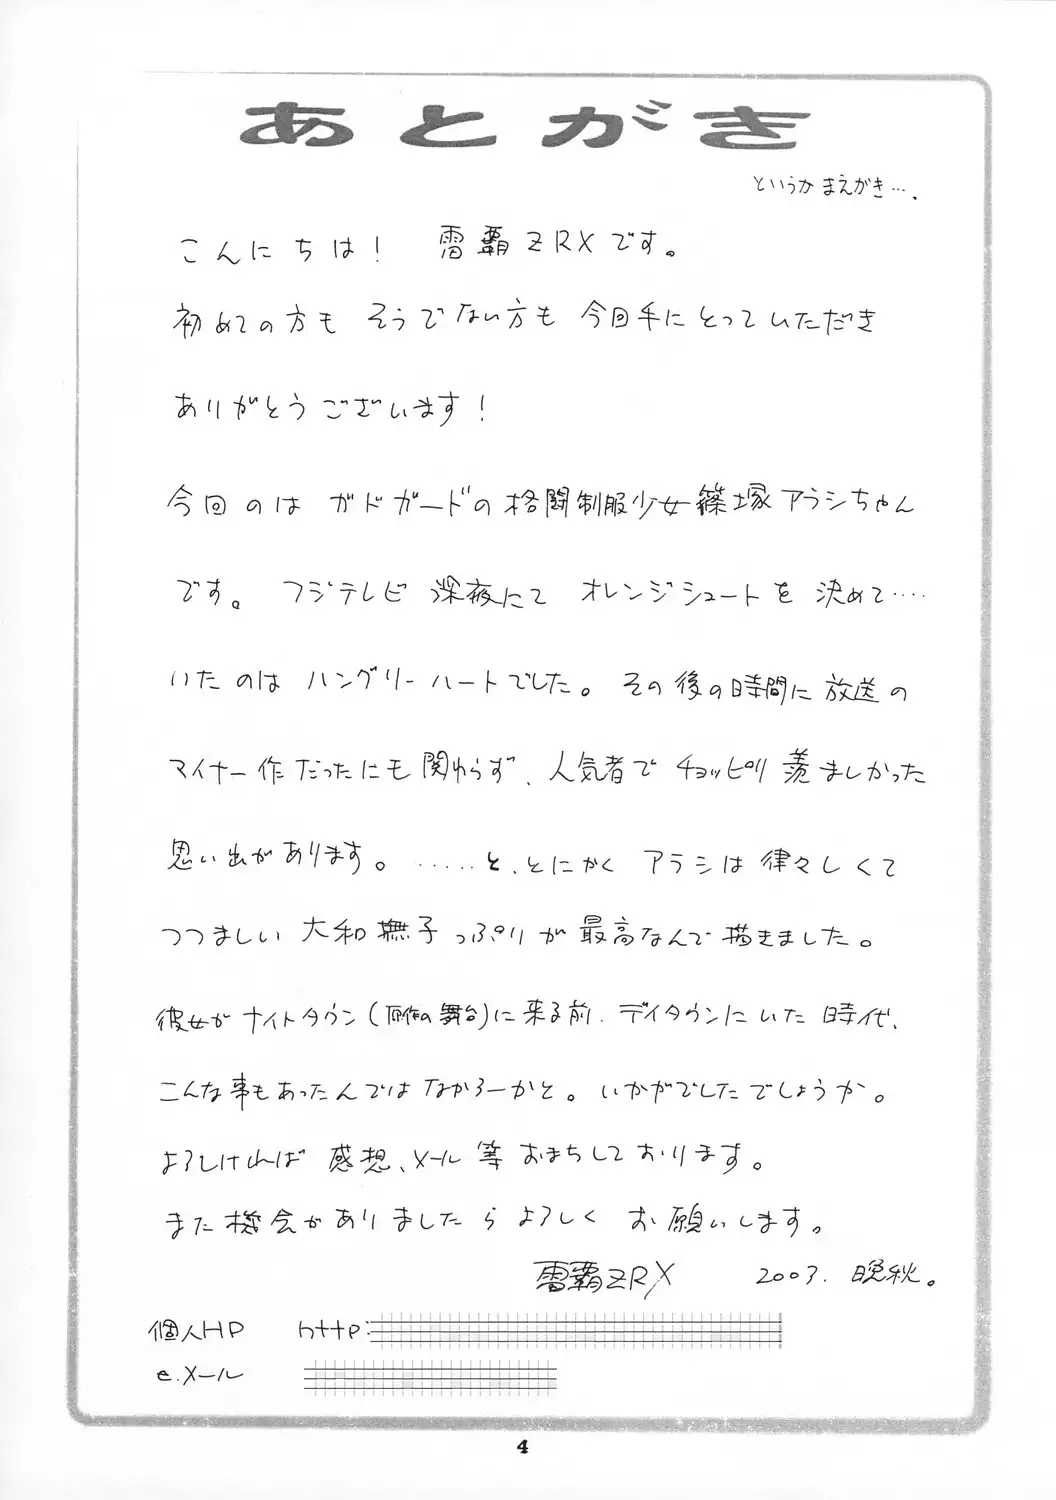 あとがき
というか まえがき….
こんにちは! 雷覇ZRXです。
初めての方も そうでない方も 今回手にとっていただき
ありがとうございます!
今回のは ガドガードの格闘制服少女篠塚アラシちゃん
です。 フジテレビ 深夜にて オレンジシュートを 決めて‥‥
いたのは ハングリーハートでした。 その後の時間に放送の
マイナー作だったにも関わらず、人気者で チョッピリ羨ましかった
思い出があります。 ‥‥‥と、とにかく アラシは 律々しくて
つつましい 大和撫子っぷりが 最高なんで描きました。
彼女が ナイトタウン(原作の舞台)に来る前、デイタウンにいた時代、
こんな事もあったんではなかろーかと。いかがでしたでしょうか。
よろしければ 感想、メール等 おまちしております。
また機会がありましたら よろしく お願いします。
雷覇ZRX 2003. 晩秋。
個人HP http:
e.メール
4